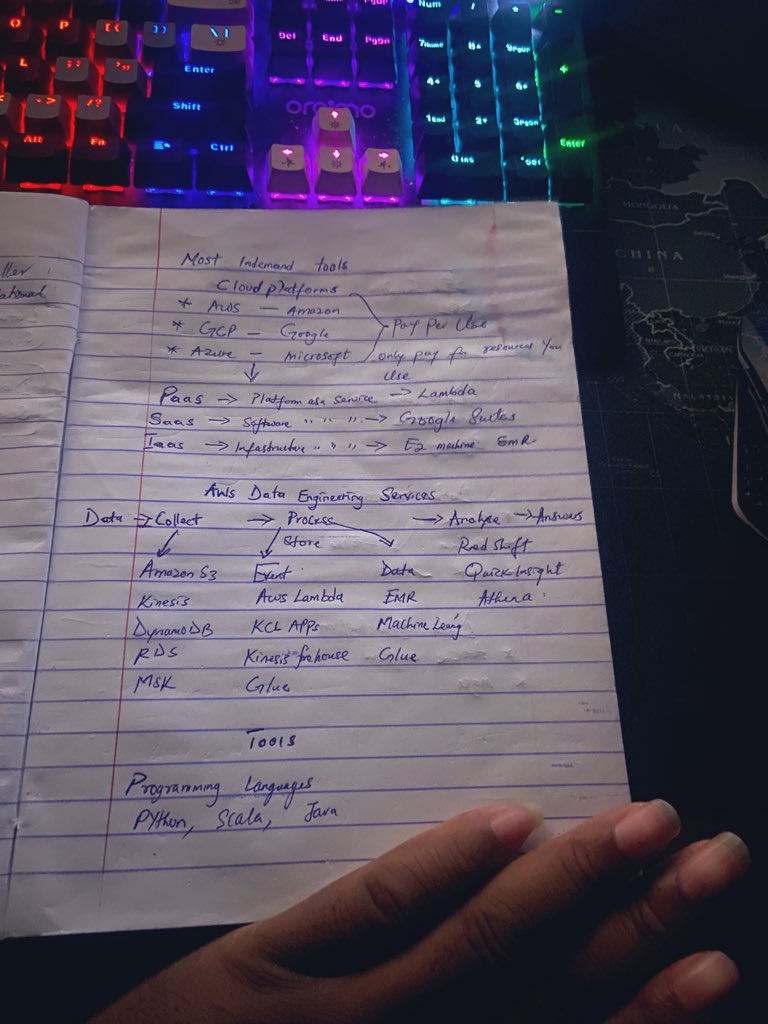 O P [{ ]} \|
Del End PgDn
Num / *
7Home 8 9PgUp
L ;: '" Enter
4 5 6
+
.> /? Shift
oraimo
1End 2 3PgDn
Alt Fn Ctrl
0 Ins .Del Enter
MONGOLIA
CHINA
VIETNAM
MALAYSIA
Most Indemand tools
Cloud platforms
* AWS — Amazon
* GCP — Google
* Azure — microsoft
Pay Per Use
only pay for resources You
Use
Paas → Platform as a Service → Lambda
Saas → Software " " " → Google Suites
Iaas → Infastructure " " " → E2 machine EMR
AWS Data Engineering Services
Data → Collect → Process → Analyse → Answers
Store Red Shift
Amazon S3 Event Data Quick Insight
Kinesis Aws Lambda EMR Athena
DynamoDB KCL APPs Machine Learng
RDS Kinesis firehouse Glue
MSK Glue
Tools
Programming Languages
Python, Scala, Java